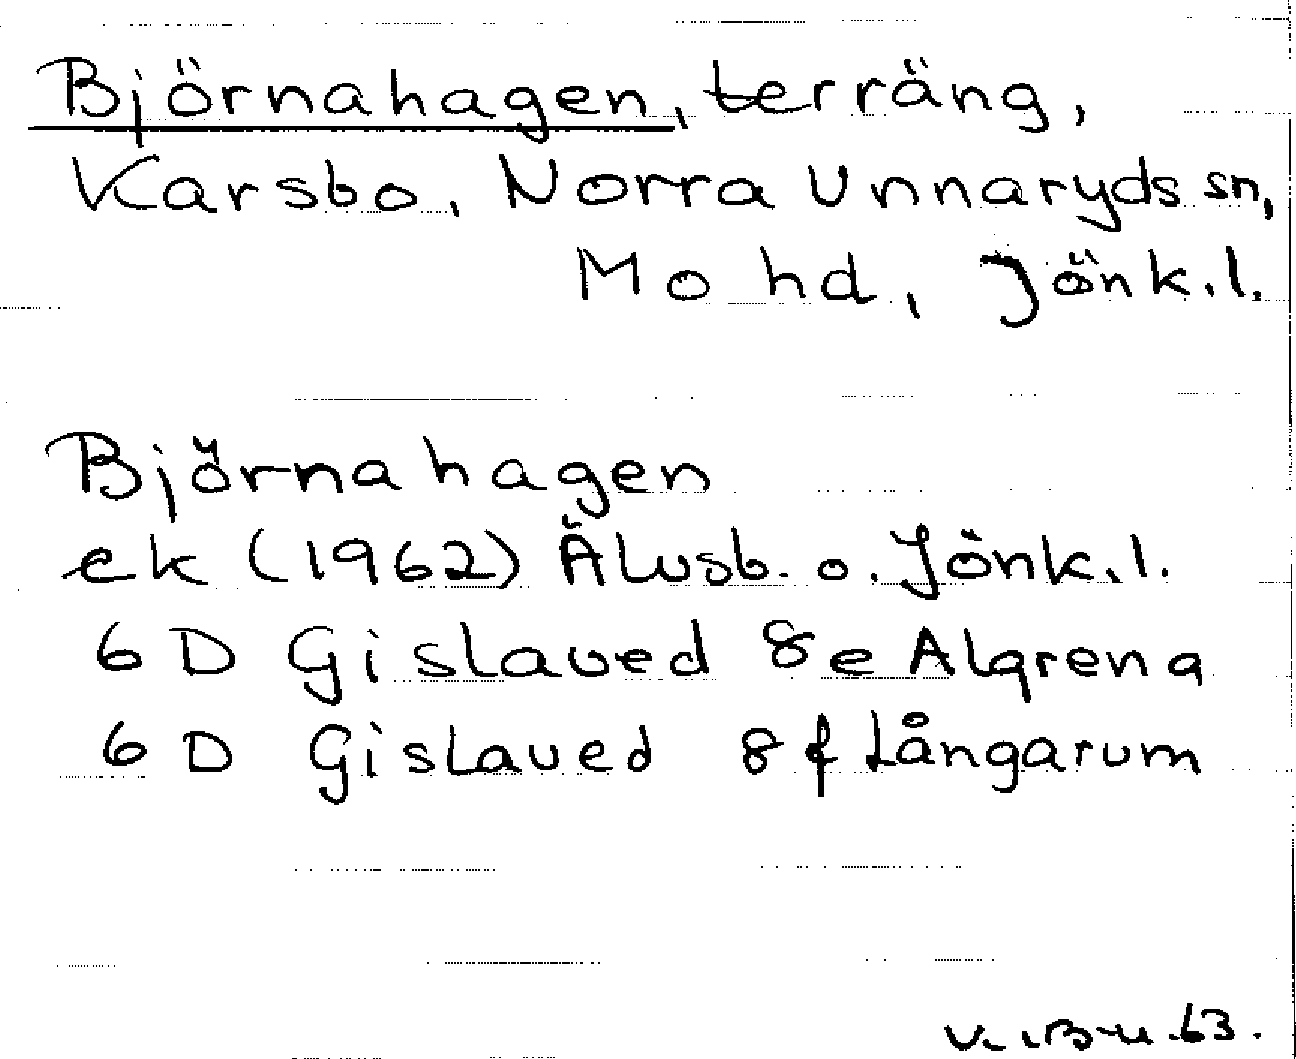 Björnahagen, terräng,
Karsbo, Norra Unnaryds sn,
Mo hd, Jönk.l.
Björnahagen
ek (1962) Älvsb. o. Jönk.l.
6 D Gislaved 8e Algrena
6 D Gislaved 8f Långarum
63.